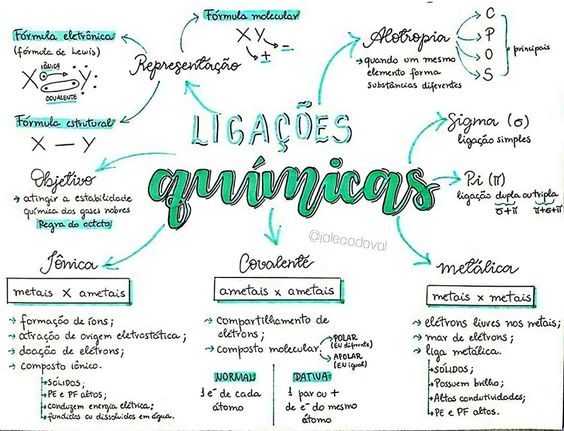 LIGAÇÕES
químicas
@ialecodoval
Representação
Fórmula molecular
X Y
+ -
Fórmula eletrônica
(fórmula de Lewis)
IÔNICA
X Y
COVALENTE
Fórmula estrutural
X — Y
Alotropia
quando um mesmo
elemento forma
substâncias diferentes
C
P
O
S
principais
Sigma (σ)
ligação simples
Pi (π)
ligação dupla ou tripla
σ+π π+σ+π
Objetivo
atingir a estabilidade
química dos gases nobres
Regra do octeto
Iônica
metais X ametais
formação de íons;
atração de origem eletrostática;
doação de elétrons;
composto iônico.
SÓLIDOS;
PE e PF altos;
conduzem energia elétrica;
fundidos ou dissolvidos em água.
Covalente
ametais x ametais
compartilhamento de
elétrons;
composto molecular:
POLAR
(EN diferente)
APOLAR
(EN igual)
NORMAL
1 é de cada
átomo
DATIVA
1 par ou +
de é do mesmo
átomo
metálica
metais x metais
elétrons livres nos metais;
mar de elétrons;
liga metálica.
SÓLIDOS;
Possuem brilho;
Altas condutividades;
PE e PF altos.